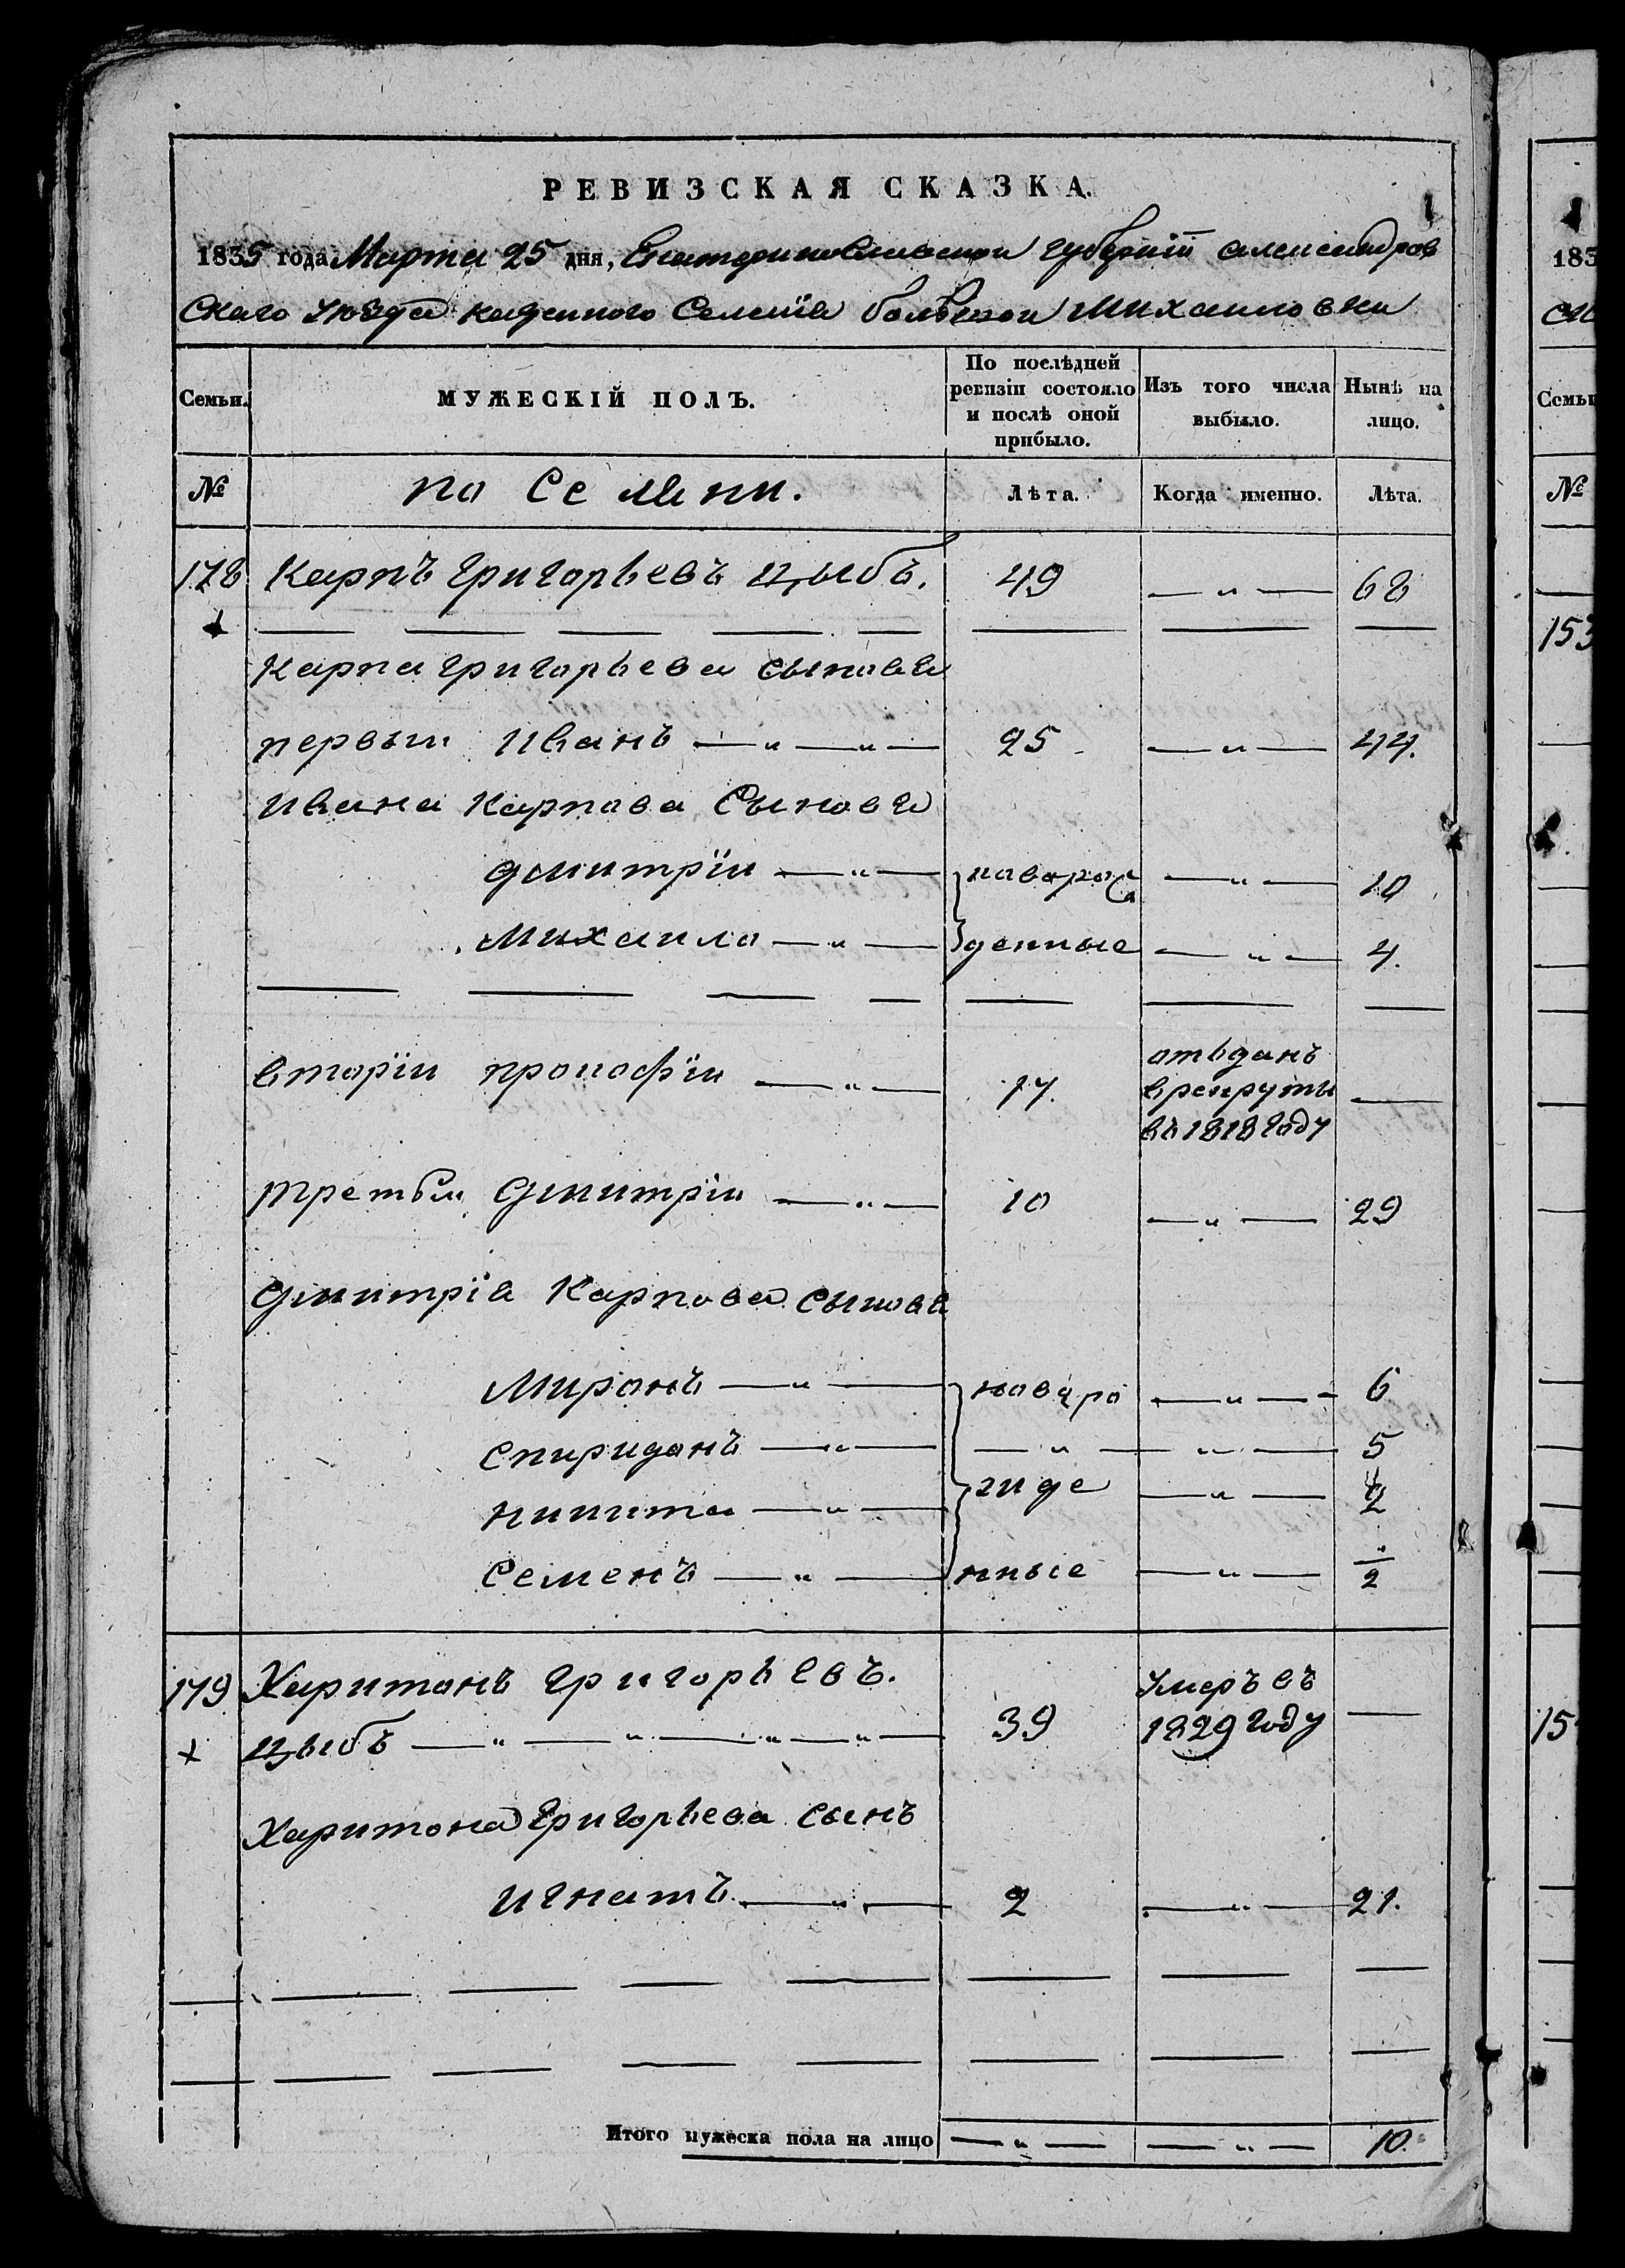 РЕВИЗСКАЯ СКАЗКА.
1835 года Марта 25 дня, Екатеринославской губернiи александров
ского уезда казенного Селенiя большой Михайловки
Семьи. МУЖЕСКІЙ ПОЛЪ. По послѣдней ревизіи состояло и послѣ оной прибыло. Изъ того числа выбыло. Нынѣ на лицо.
№ Лѣта. Когда именно. Лѣта.
178 Карпъ григорьевъ цыбъ. 49 — " — 68
Карпа григорьева сыновья
первыи иванъ — " — " — 25 — " — 44.
ивана Карпова Сыновья
дмитрiи — " — новорож — " — 10
михаило — " — денные — " — 4.
вторiи прокофiи — " — 17. отъданъ
врекруты —
въ 1818 году
третьи дмитрiи — " — 10 — " — 29
дмитрiя Карпова сыновя
Миронъ — " — новоро — " — 6
спиридонъ — " — — " — " — 5
никита — " — жде — " —
Семенъ — " — нные — " — "/2
179 Харитонъ григорьевъ. Умеръ въ
цыбъ — " — " — " — " — 39 1829 году —
Харитона григорьева сынъ
игнатъ — " — 2 — " — 21.
Итого мужеска пола на лицо — " — — " — 10.
183
Семьи
№
153
15